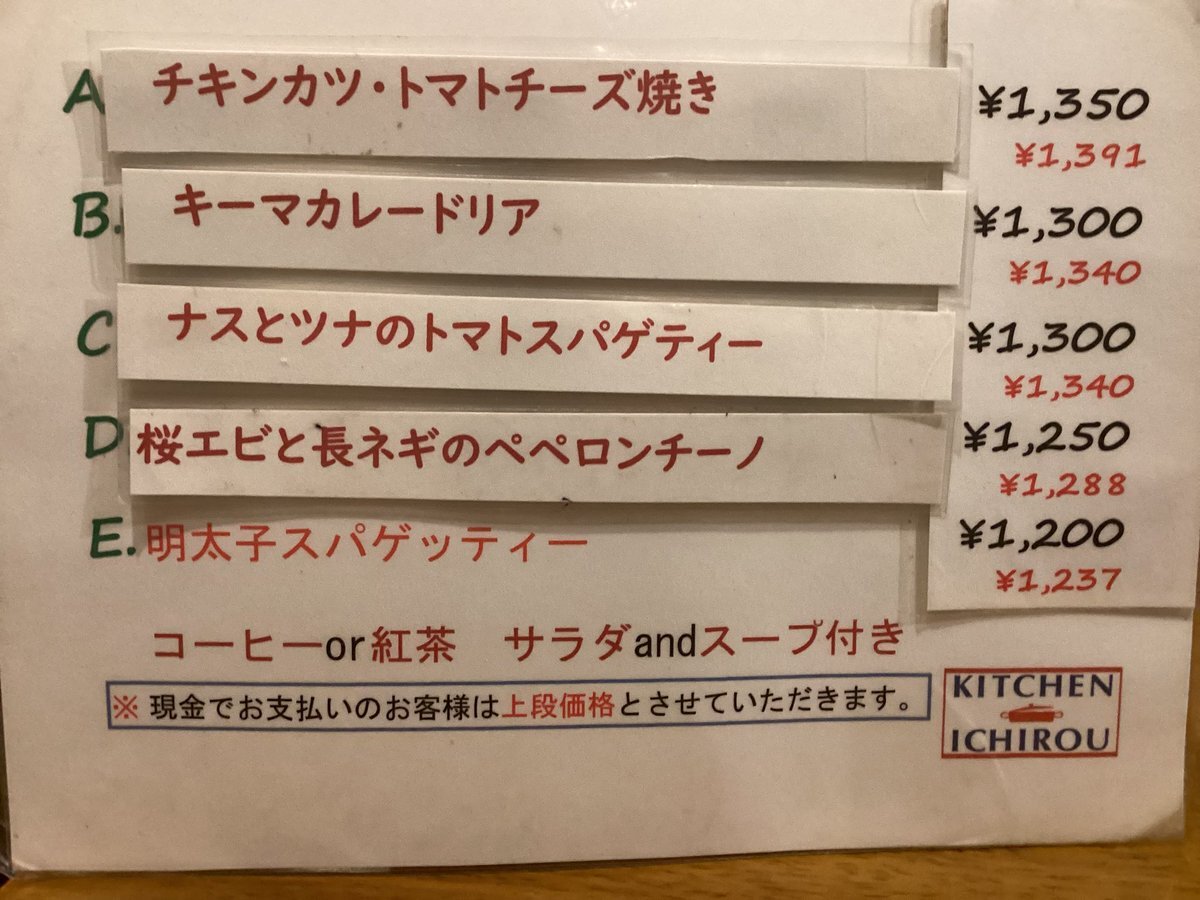 A チキンカツ・トマトチーズ焼き ¥1,350
¥1,391
B. キーマカレードリア ¥1,300
¥1,340
C ナスとツナのトマトスパゲティー ¥1,300
¥1,340
D 桜エビと長ネギのペペロンチーノ ¥1,250
¥1,288
E. 明太子スパゲッティー ¥1,200
¥1,237
コーヒーor紅茶 サラダandスープ付き
※ 現金でお支払いのお客様は上段価格とさせていただきます。
KITCHEN
ICHIROU